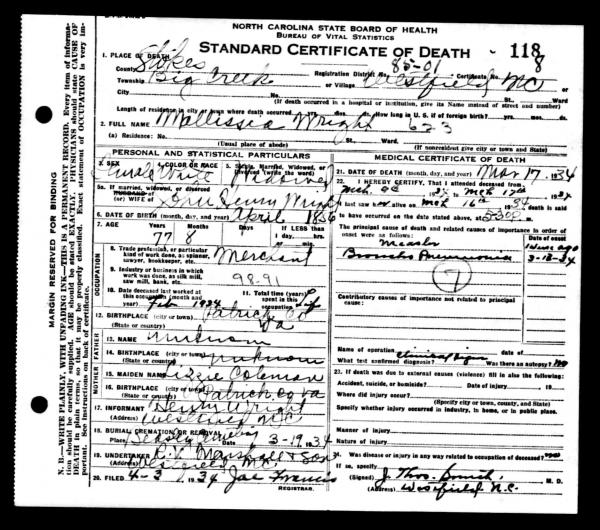 NORTH CAROLINA STATE BOARD OF HEALTH
BUREAU OF VITAL STATISTICS
STANDARD CERTIFICATE OF DEATH
118
8
1. PLACE OF DEATH
County Stokes Registration District No. 85-01 Certificate No.
Township Big Creek or Village Westfield NC
City No. St. Ward
(If death occurred in a hospital or institution, give its Name instead of street and number)
Length of residence in city or town where death occurred yrs. mos. ds. How long in U. S. if of foreign birth? yrs. mos. ds.
2. FULL NAME Mollissia Wright 623
(a) Residence: No. St. Ward
(Usual place of abode) (If nonresident give city or town and State)
PERSONAL AND STATISTICAL PARTICULARS
3. SEX 4. COLOR OR RACE 5. Single, Married, Widowed, or Divorced (write the word)
Female White Widowed
5a. If married, widowed, or divorced
HUSBAND of
(or) WIFE of Henry Wright
6. DATE OF BIRTH (month, day, and year) April 1856
7. AGE Years Months Days If LESS than
1 day, hrs.
77 8 or min.
OCCUPATION
8. Trade, profession, or particular kind of work done, as spinner, sawyer, bookkeeper, etc. Merchant
9. Industry or business in which work was done, as silk mill, saw mill, bank, etc. 98-91
10. Date deceased last worked at this occupation (month and year) Feb 1934
11. Total time (years) spent in this occupation Life
12. BIRTHPLACE (city or town) Patrick Co
(State or country) Va
FATHER
13. NAME unknown
14. BIRTHPLACE (city or town) unknown
(State or country)
MOTHER
15. MAIDEN NAME Lizzie Coleman
16. BIRTHPLACE (city or town) Patrick Co Va
(State or country)
17. INFORMANT Henry Wright
(Address) Westfield N.C.
18. BURIAL, CREMATION OR REMOVAL
Place Date 3-19, 1934
19. UNDERTAKER R. V. Marshall & Son
(Address) Westfield N.C.
20. FILED 4-3, 1934 Joe Francis
REGISTRAR.
MEDICAL CERTIFICATE OF DEATH
21. DATE OF DEATH (month, day, and year) Mar 17, 1934
22. I HEREBY CERTIFY, That I attended deceased from
Mch. 1934 to Mch 17th, 1934
I last saw h alive on Mch 16th, 1934, death is said
to have occurred on the date stated above, at
The principal cause of death and related causes of importance in order of onset were as follows: Date of onset
Measles
Broncho Pneumonia 3-13-34
7
Contributory causes of importance not related to principal cause:
Name of operation date of
What test confirmed diagnosis? Clinical Signs Was there an autopsy? No
23. If death was due to external causes (violence) fill in also the following:
Accident, suicide, or homicide? Date of injury 19
Where did injury occur?
(Specify city or town, county, and State)
Specify whether injury occurred in industry, in home, or in public place.
Manner of injury
Nature of injury
24. Was disease or injury in any way related to occupation of deceased? No
If so, specify
(Signed) J. Thos. Smith, M. D.
(Address) Westfield N.C.
MARGIN RESERVED FOR BINDING
N. B.—WRITE PLAINLY, WITH UNFADING INK—THIS IS A PERMANENT RECORD. Every item of information should be carefully supplied. AGE should be stated EXACTLY. PHYSICIANS should state CAUSE OF DEATH in plain terms, so that it may be properly classified. Exact statement of OCCUPATION is very important. See instructions on back of certificate.